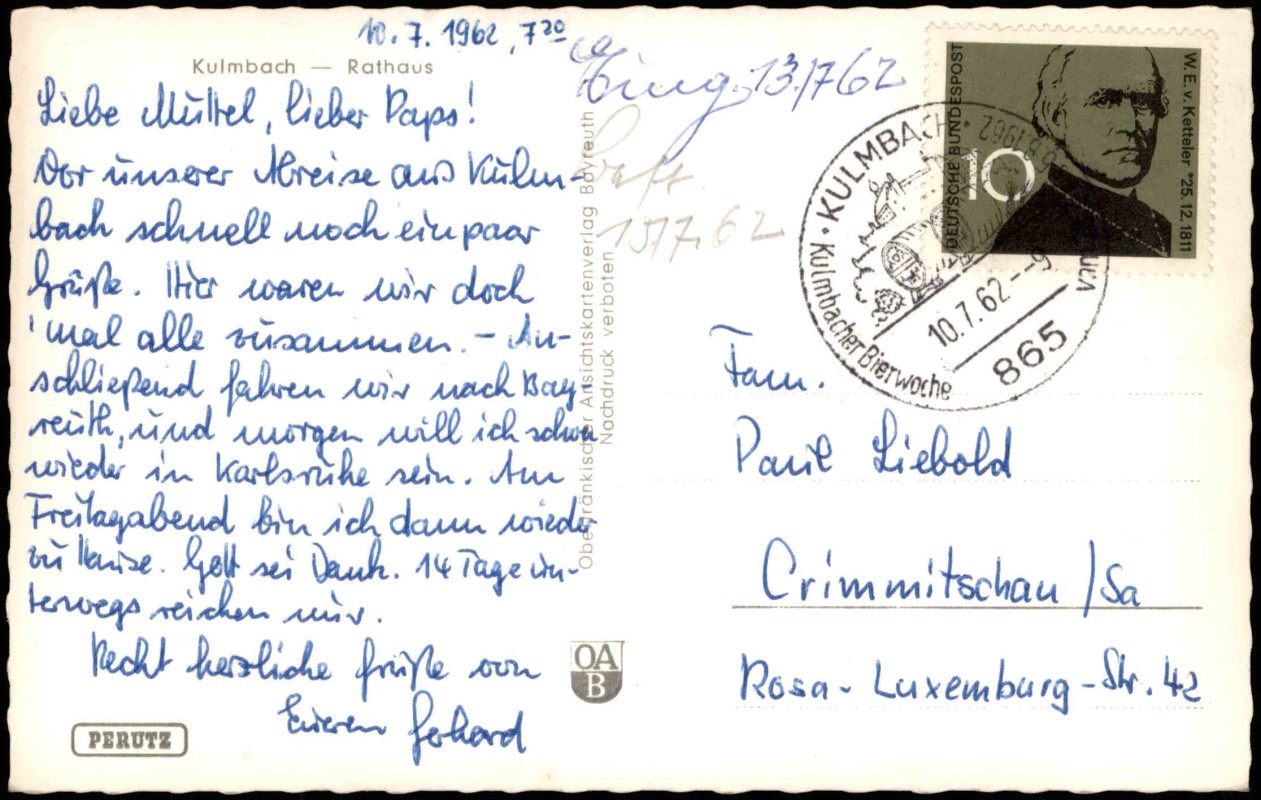 10.7.1962, 7²⁰
Kulmbach — Rathaus
Liebe Muttel, lieber Paps!
Vor unserer Abreise aus Kulm-
bach schnell noch ein paar
Grüße. Hier waren wir doch
'mal alle zusammen. - An-
schließend fahren wir nach Bay-
reuth, und morgen will ich schon
wieder in Karlsruhe sein. Am
Freitagabend bin ich dann wieder
zu Hause. Gott sei Dank. 14 Tage un-
terwegs reichen mir.
Recht herzliche Grüße von
Eurem Gerhard
PERUTZ
Oberfränkischer Ansichtskartenverlag Bayreuth
Nachdruck verboten
OA
B
Eing. 13/7 62
15/7.62
DEUTSCHE BUNDESPOST
10
W. E. v. Ketteler *25.12.1811
KULMBACH
Kulmbacher Bierwoche
10.7.62--9
865
Fam.
Paul Liebold
Crimmitschau /Sa
Rosa-Luxemburg-Str. 42